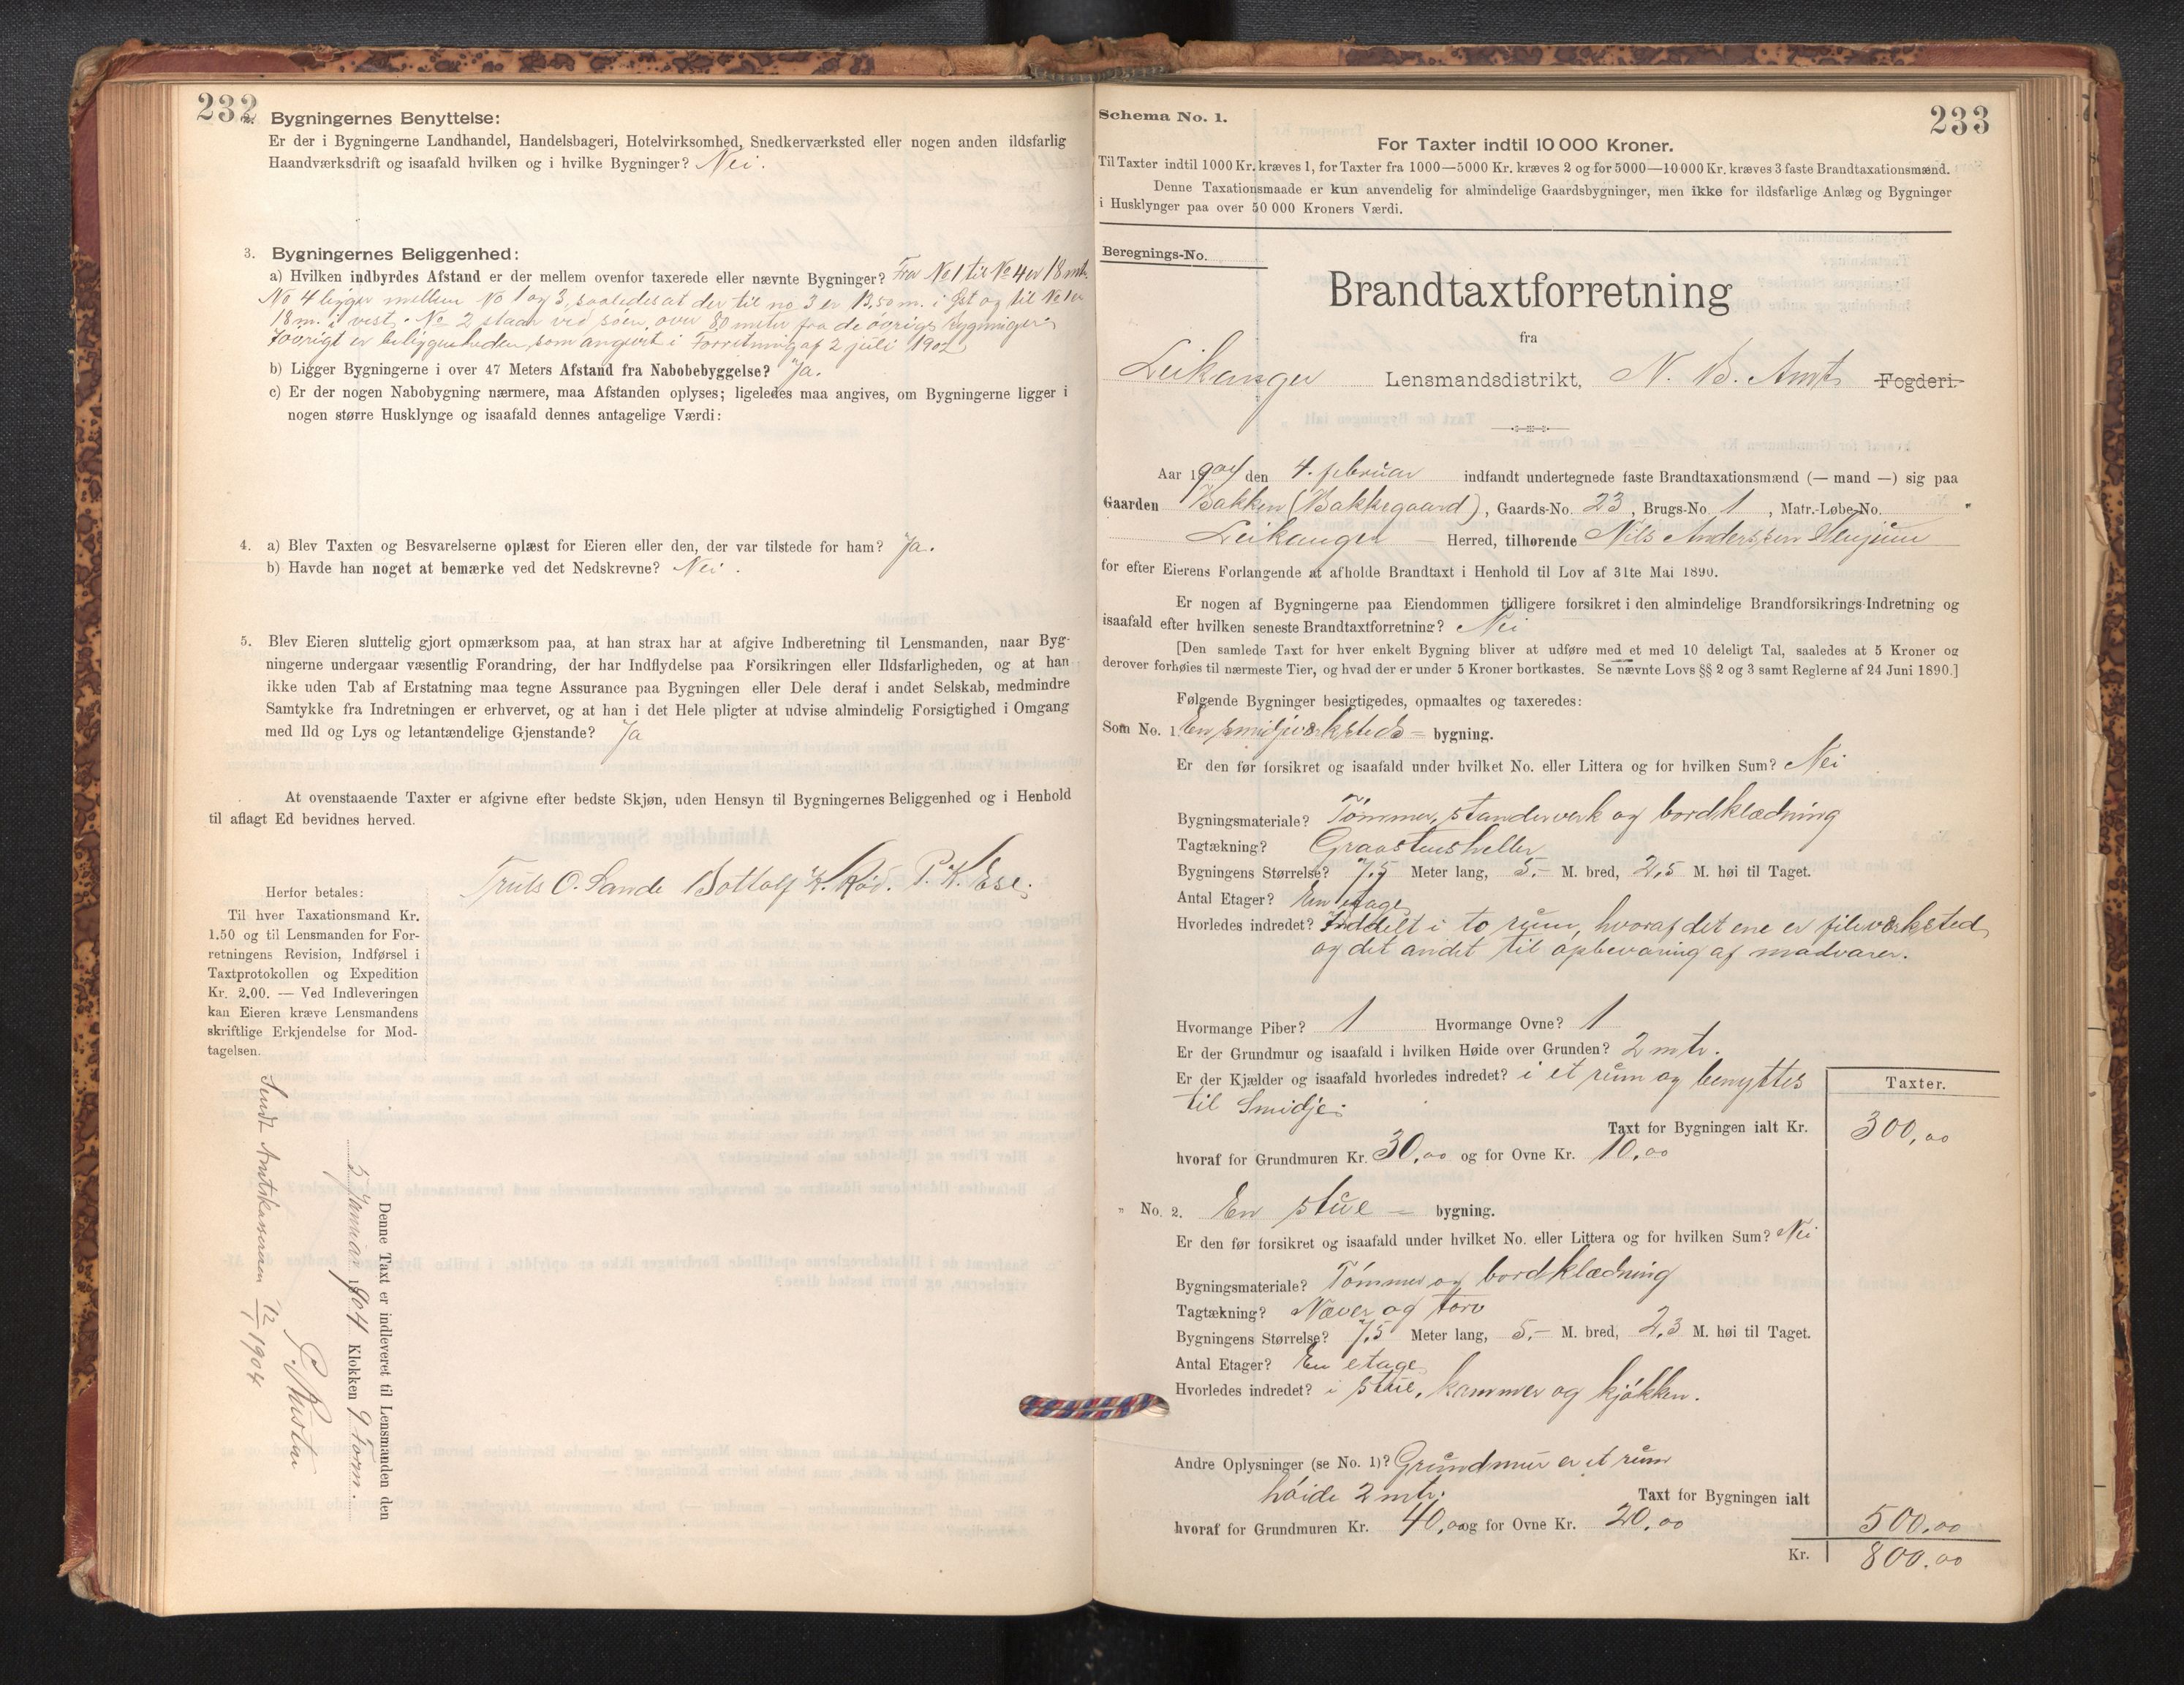 232
2. Bygningernes Benyttelse:
Er der i Bygningerne Landhandel, Handelsbageri, Hotelvirksomhed, Snedkerværksted eller nogen anden ildsfarlig
Haandværksdrift og isaafald hvilken og i hvilke Bygninger? Nei.
3. Bygningernes Beliggenhed:
a) Hvilken indbyrdes Afstand er der mellem ovenfor taxerede eller nævnte Bygninger? Fra No 1 til No 4 er 18 mtr.
No 4 ligger mellem No 1 og 3, saaledes at der til no 3 er 13,50 m. i Øst og til No 1 er
18 m. i vest. No 2 staar ved söen, over 80 meter fra de övrige bygninger.
Iövrigt er beliggenheden, som angivet i Forretning af 2 juli 1902
b) Ligger Bygningerne i over 47 Meters Afstand fra Nabobebyggelse? Ja.
c) Er der nogen Nabobygning nærmere, maa Afstanden oplyses; ligeledes maa angives, om Bygningerne ligger i
nogen større Husklynge og isaafald dennes antagelige Værdi:
4. a) Blev Taxten og Besvarelserne oplæst for Eieren eller den, der var tilstede for ham? Ja.
b) Havde han noget at bemærke ved det Nedskrevne? Nei.
5. Blev Eieren sluttelig gjort opmærksom paa, at han strax har at afgive Indberetning til Lensmanden, naar Byg-
ningerne undergaar væsentlig Forandring, der har Indflydelse paa Forsikringen eller Ildsfarligheden, og at han
ikke uden Tab af Erstatning maa tegne Assurance paa Bygningen eller Dele deraf i andet Selskab, medmindre
Samtykke fra Indretningen er erhvervet, og at han i det Hele pligter at udvise almindelig Forsigtighed i Omgang
med Ild og Lys og letantændelige Gjenstande? Ja
At ovenstaaende Taxter er afgivne efter bedste Skjøn, uden Hensyn til Bygningernes Beliggenhed og i Henhold
til aflagt Ed bevidnes herved.
Truls O. Sande Bottolf P. K. Ese.
Herfor betales:
Til hver Taxationsmand Kr.
1.50 og til Lensmanden for For-
retningens Revision, Indførsel i
Taxtprotokollen og Expedition
Kr. 2.00. — Ved Indleveringen
kan Eieren kræve Lensmandens
skriftlige Erkjendelse for Mod-
tagelsen.
Denne Taxt er indleveret til Lensmanden den
5 Januar 1904 Klokken 9 Form.
Sendt Amtskassereren 12/1 1904
233
Schema No. 1.
For Taxter indtil 10 000 Kroner.
Til Taxter indtil 1000 Kr. kræves 1, for Taxter fra 1000—5000 Kr. kræves 2 og for 5000—10 000 Kr. kræves 3 faste Brandtaxationsmænd.
Denne Taxationsmaade er kun anvendelig for almindelige Gaardsbygninger, men ikke for ildsfarlige Anlæg og Bygninger
i Husklynger paa over 50 000 Kroners Værdi.
Beregnings-No.
Brandtaxtforretning
fra
Leikanger Lensmandsdistrikt, N. B. Amt Fogderi.
Aar 1904 den 4. februar indfandt undertegnede faste Brandtaxationsmænd (— mand —) sig paa
Gaarden Bakken (Bakkegaard), Gaards-No. 23, Brugs-No. 1, Matr.-Løbe-No.
Leikanger Herred, tilhørende Nils Anderssen Henjum
for efter Eierens Forlangende at afholde Brandtaxt i Henhold til Lov af 31te Mai 1890.
Er nogen af Bygningerne paa Eiendommen tidligere forsikret i den almindelige Brandforsikrings-Indretning og
isaafald efter hvilken seneste Brandtaxtforretning? Nei
[Den samlede Taxt for hver enkelt Bygning bliver at udføre med et med 10 deleligt Tal, saaledes at 5 Kroner og
derover forhøies til nærmeste Tier, og hvad der er under 5 Kroner bortkastes. Se nævnte Lovs §§ 2 og 3 samt Reglerne af 24 Juni 1890.]
Følgende Bygninger besigtigedes, opmaaltes og taxeredes:
Som No. 1. En smidjeværksteds - bygning.
Er den før forsikret og isaafald under hvilket No. eller Littera og for hvilken Sum? Nei
Bygningsmateriale? Tömmer, standerverk og bordklædning
Tagtækning? Graasteinsheller
Bygningens Størrelse? 7,5 Meter lang, 5.- M. bred, 2,5 M. høi til Taget.
Antal Etager? En etage
Hvorledes indredet? Inddelt i to rum, hvoraf det ene er fileværksted
og det andet til opbevaring af madvarer.
Hvormange Piber? 1 Hvormange Ovne? 1
Er der Grundmur og isaafald i hvilken Høide over Grunden? 2 mtr.
Er der Kjælder og isaafald hvorledes indredet? i et rum og benyttes
til Smidje.
Taxter.
Taxt for Bygningen ialt Kr. 300,00
hvoraf for Grundmuren Kr. 30,00 og for Ovne Kr. 10,00
" No. 2. En stue - bygning.
Er den før forsikret og isaafald under hvilket No. eller Littera og for hvilken Sum? Nei
Bygningsmateriale? Tömmer og bordklædning
Tagtækning? Næver og torv
Bygningens Størrelse? 7,5 Meter lang, 5.- M. bred, 2,3 M. høi til Taget.
Antal Etager? En etage
Hvorledes indredet? i stue, kammer og kjökken.
Andre Oplysninger (se No. 1)? Grundmur er et rum
höide 2 mtr.
Taxt for Bygningen ialt
hvoraf for Grundmuren Kr. 40,00 og for Ovne Kr. 20,00 500,00
Kr. 800,00